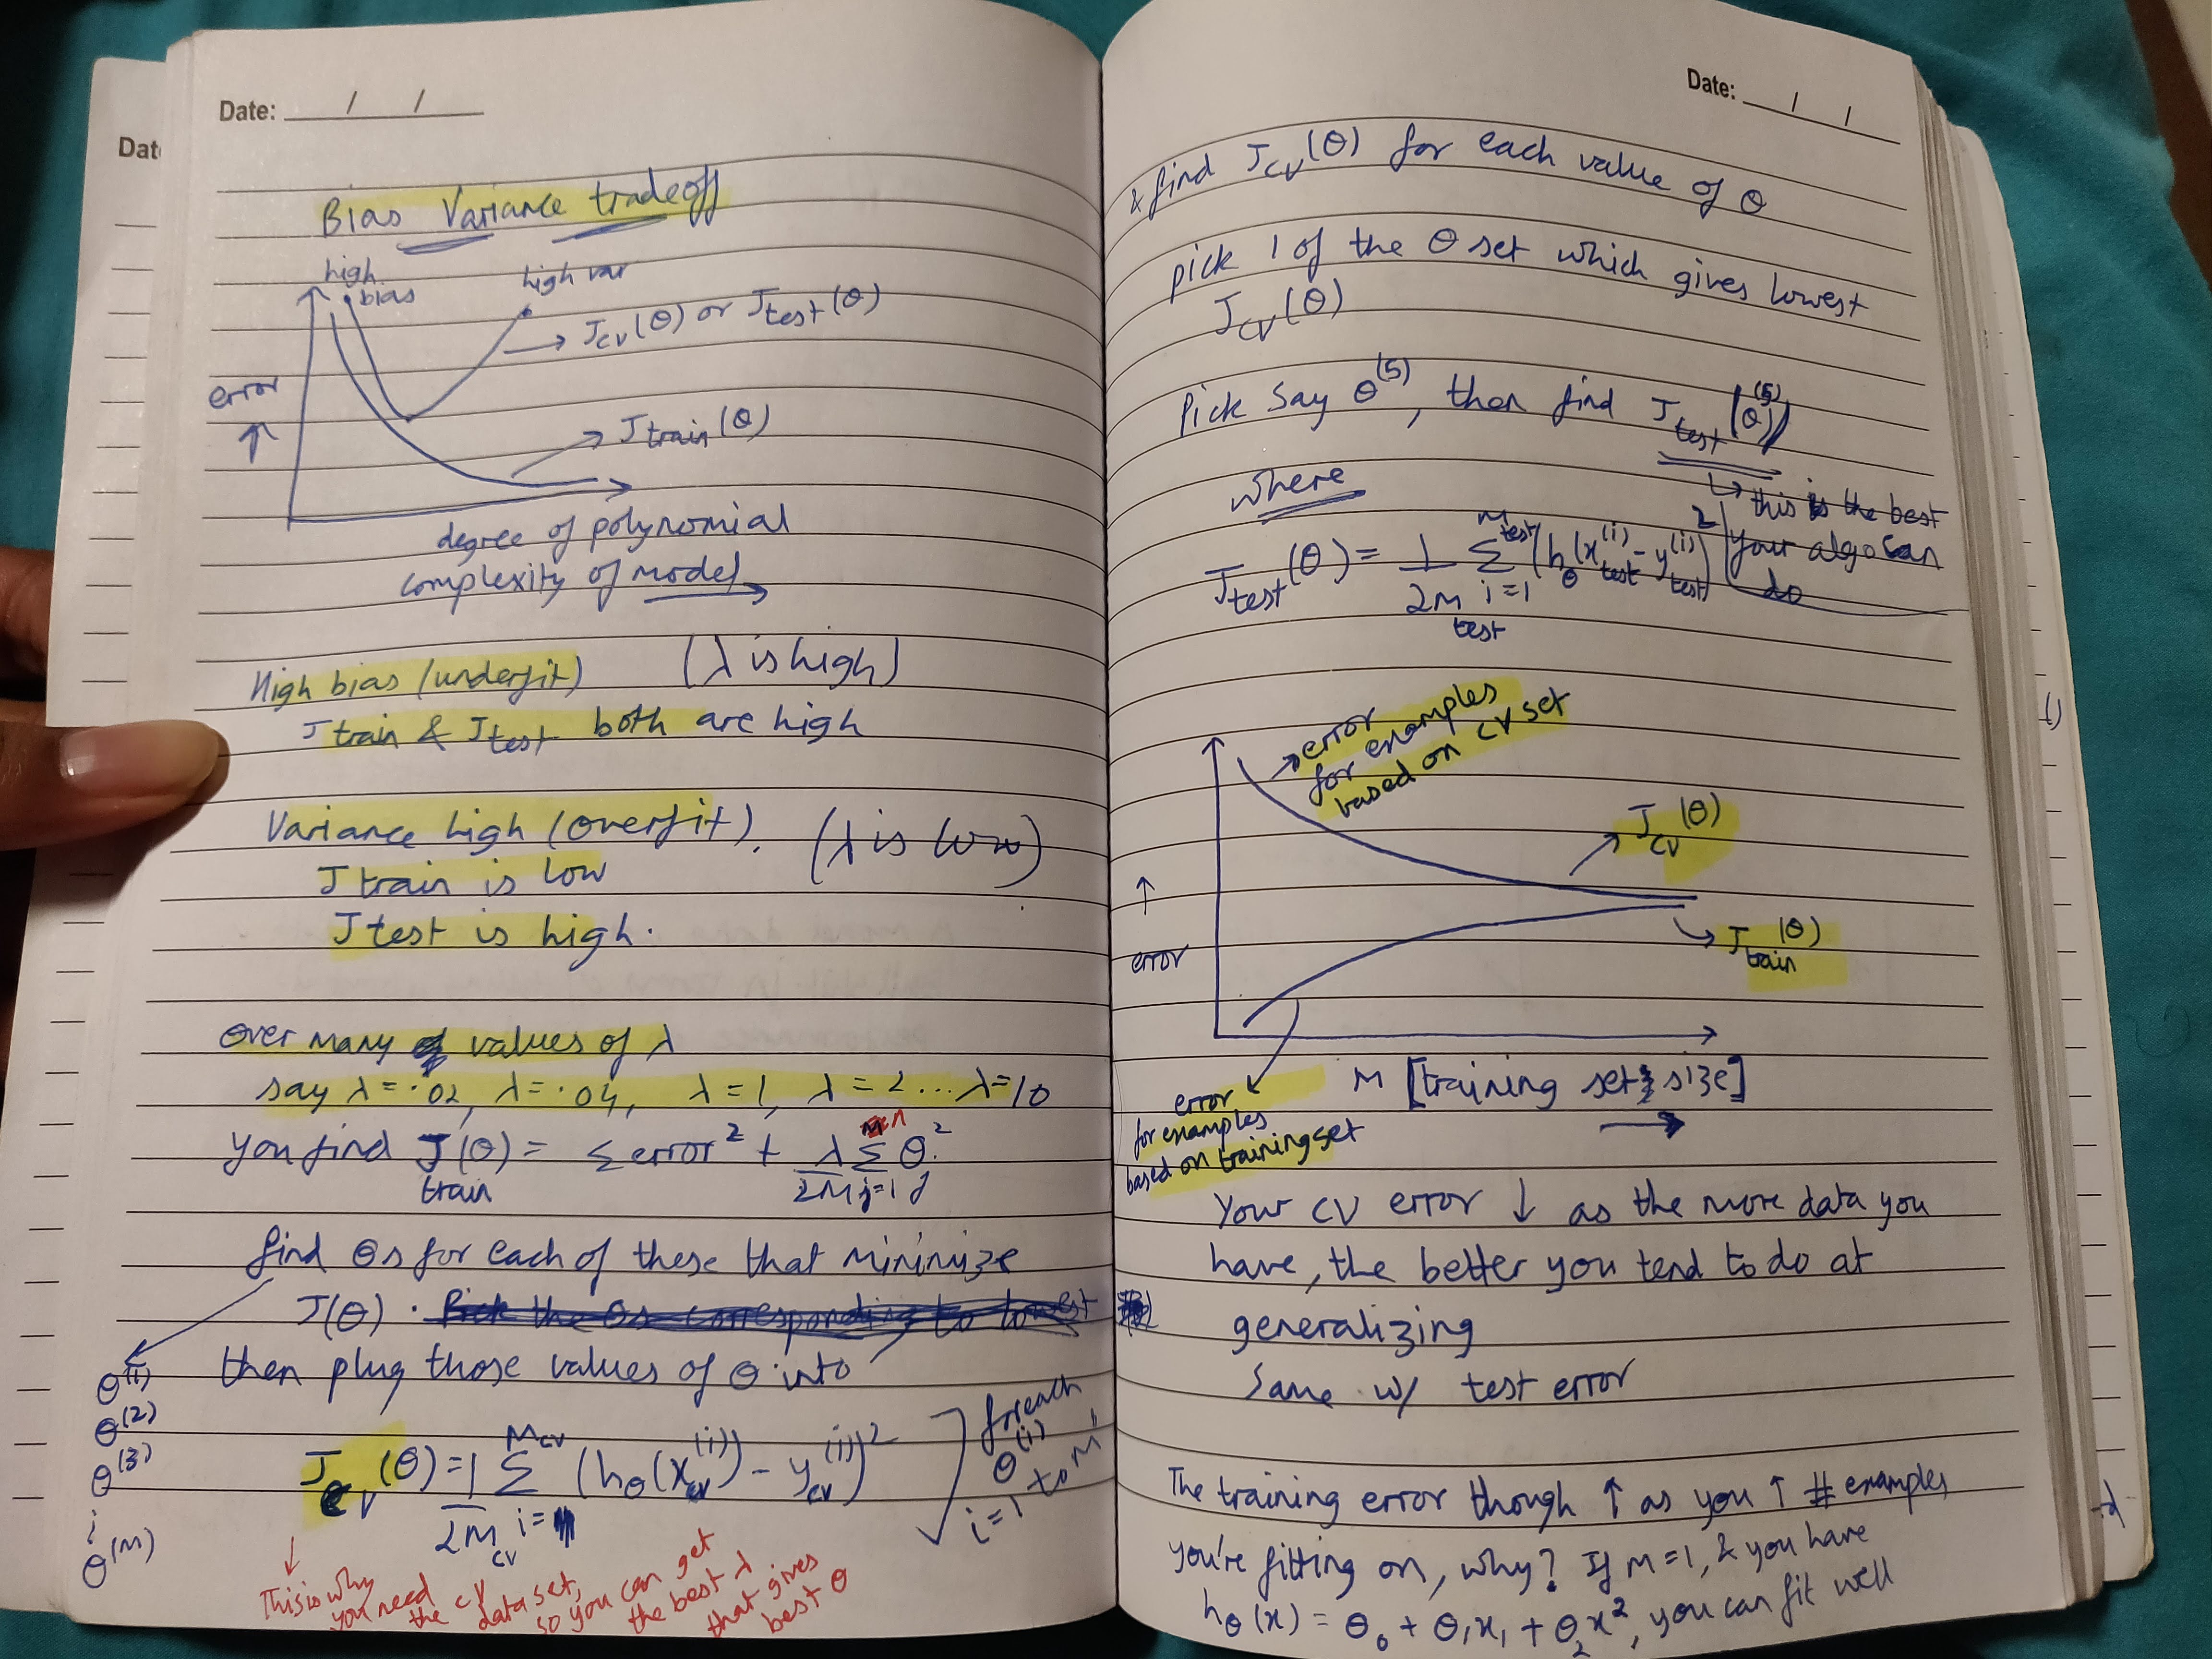 Date: / /
Dat
Bias Variance tradeoff
high
bias
high var
Jcv(θ) or Jtest(θ)
error
↑
Jtrain(θ)
degree of polynomial
complexity of model
High bias (underfit) (λ is high)
Jtrain & Jtest both are high
Variance high (overfit). (λ is low)
Jtrain is low
Jtest is high.
Over many values of λ
say λ = .02, λ = .04, λ = 1, λ = 2 ... λ = 10
you find Jtrain(θ) = Σ error² + λ/2m Σ j=1 n θj²
find θs for each of these that minimize
J(θ). Pick the θs corresponding to lowest
then plug those values of θ into
θ(1)
θ(2)
θ(3)
θ(m)
Jcv(θ) = 1/2mcv Σ i=1 mcv (hθ(xcv(i)) - ycv(i))²
foreach
θ(i)
i=1 to m
This is why
you need
the cv
data set,
so you can get
the best λ
that gives
best θ
Date: / /
& find Jcv(θ) for each value of θ
pick 1 of the θ set which gives lowest
Jcv(θ)
Pick say θ(5), then find Jtest(θ(5))
where
↳ this is the best
your algo can
do
Jtest(θ) = 1/2mtest Σ i=1 mtest (hθ(xtest(i) - ytest(i))²
error
for examples
based on CV set
Jcv(θ)
↑
error
Jtrain(θ)
M [training set size]
error
for examples
based on training set
Your CV error ↓ as the more data you
have, the better you tend to do at
generalizing
Same w/ test error
The training error though ↑ as you ↑ # examples
you're fitting on, why? If m=1, & you have
hθ(x) = θ0 + θ1x1 + θ2x², you can fit well